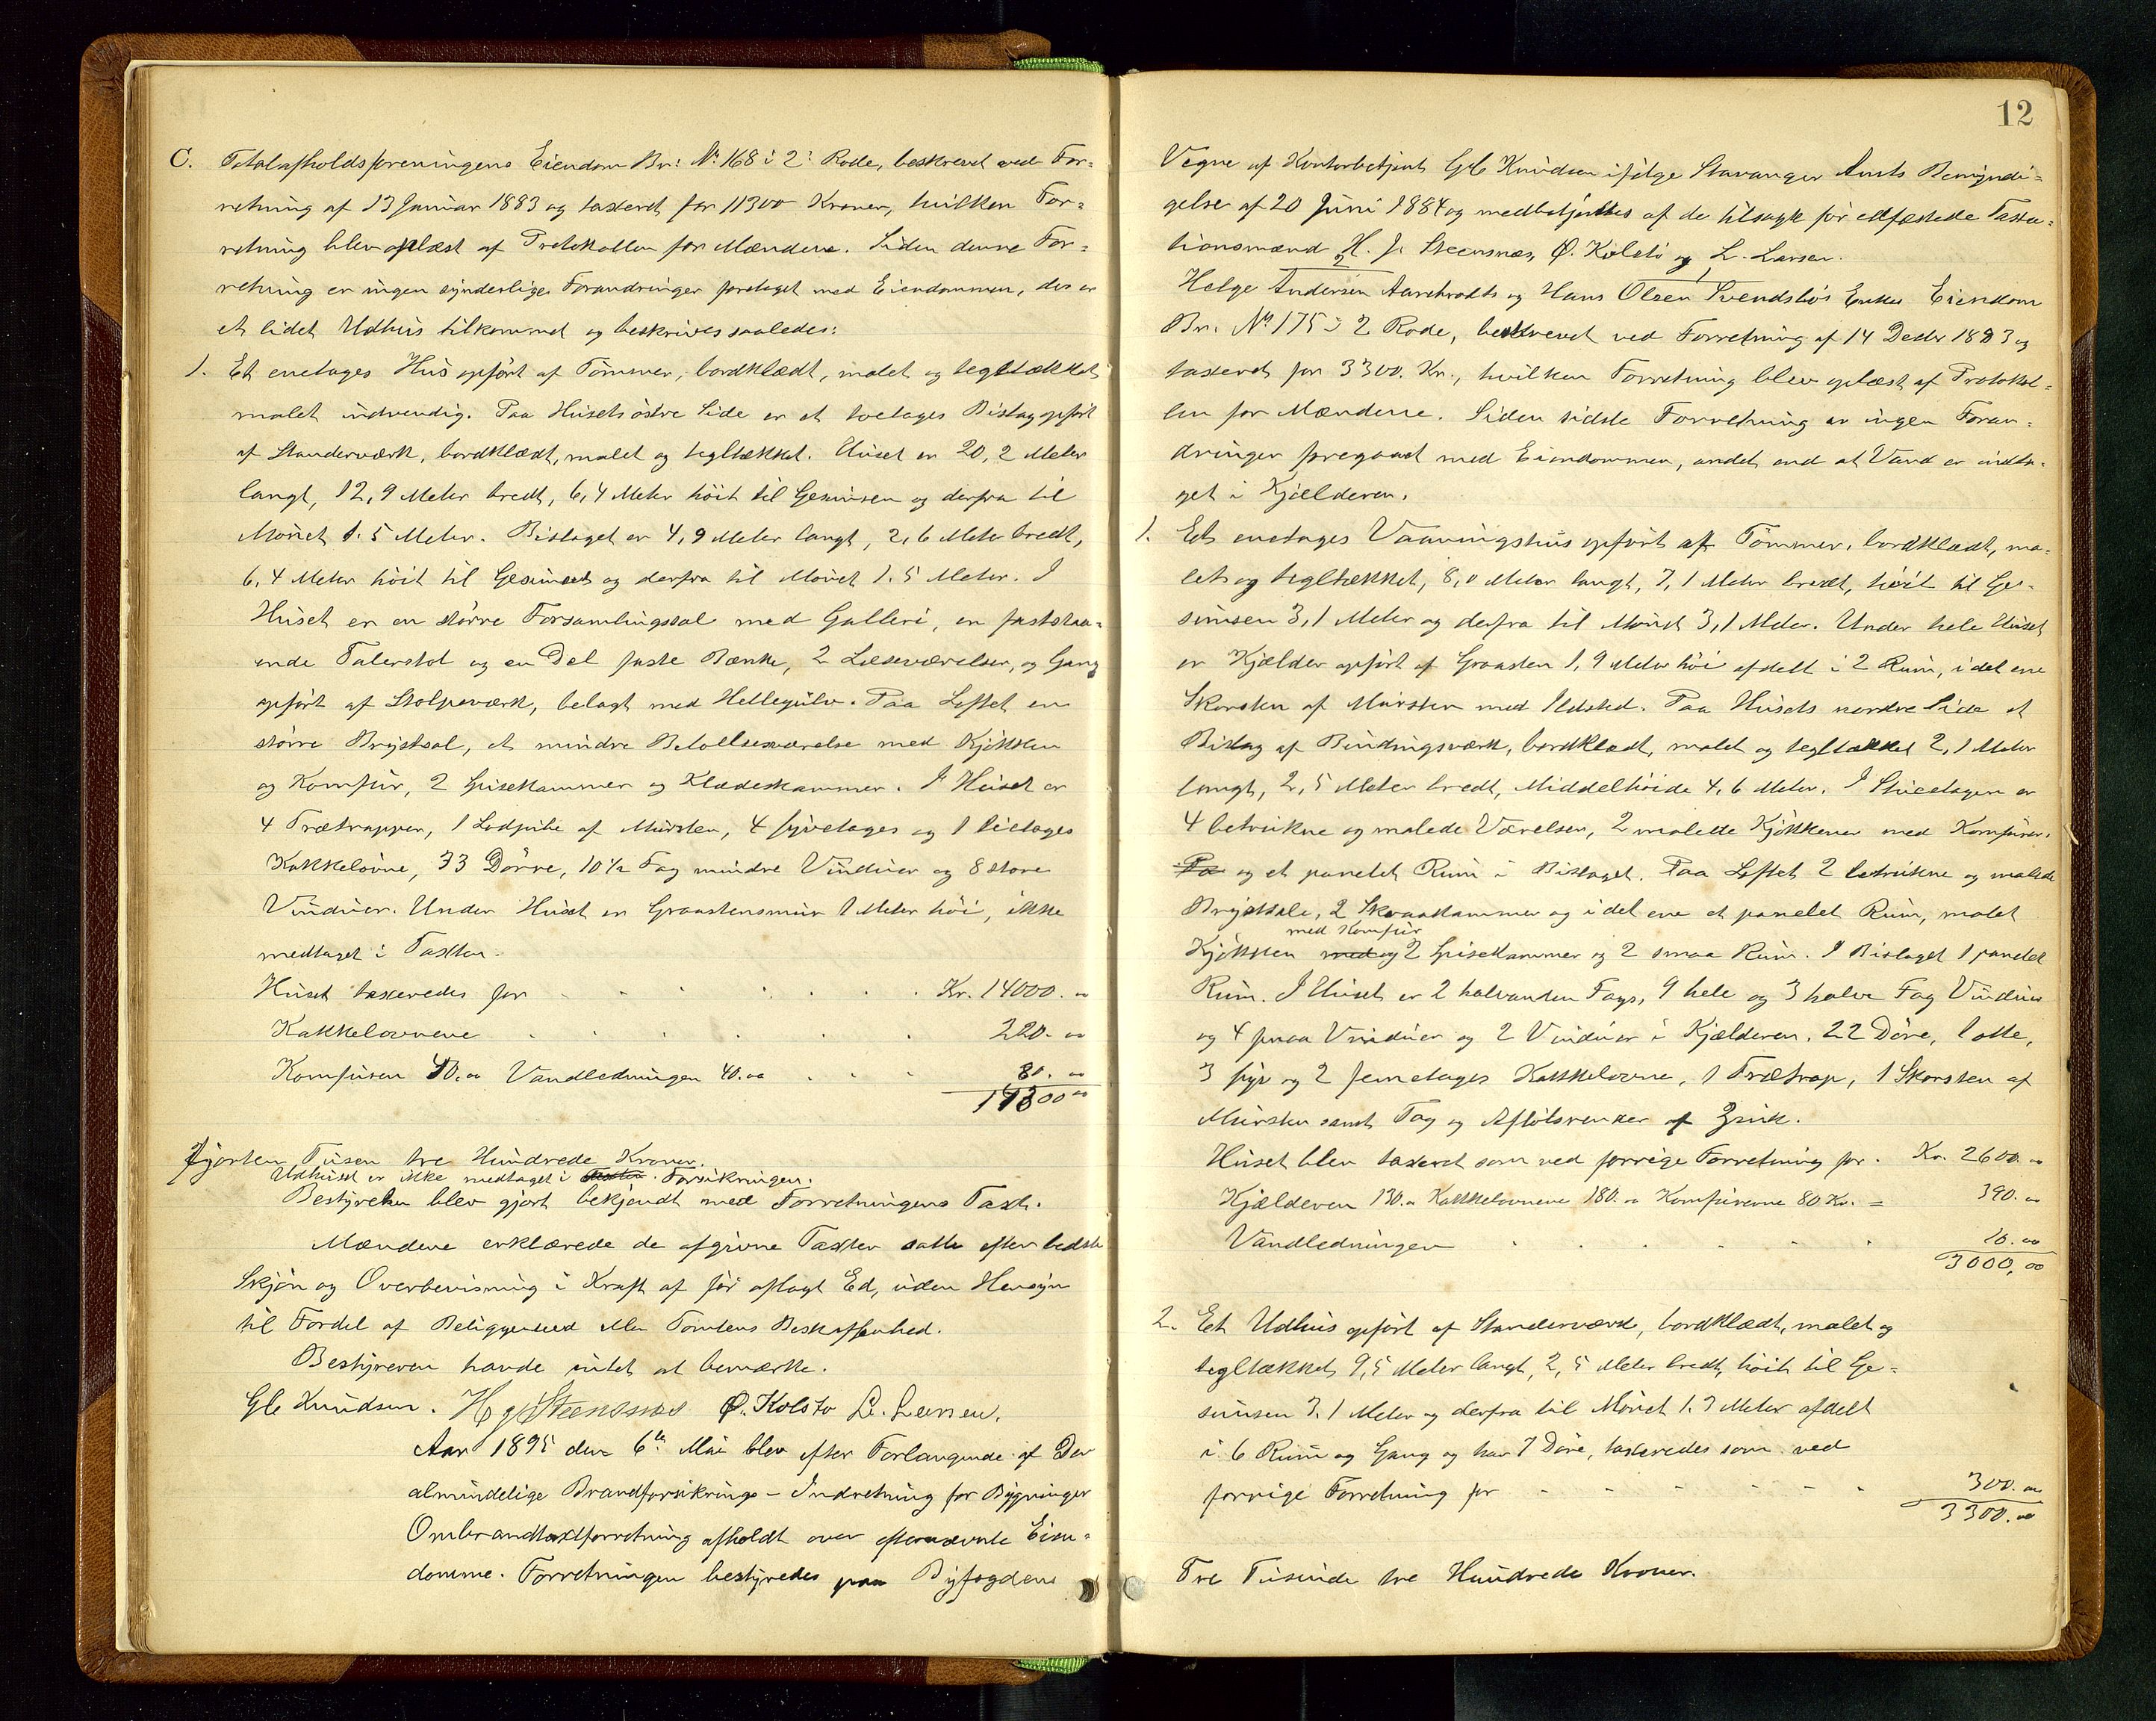 C. Totalafholdsforeningens Eiendom Br: No 168 i 2: Rode, beskrevet ved For=
retning af 13 Januar 1883 og taxeret for 11300 Kroner, hvilken For=
retning blev oplæst af Protokollen for Mændene. Siden denne For=
retning er ingen synderlige Forandringer foretaget med Eiendommen, der er
et lidet Udhus tilkommet og beskrives saaledes:
1. Et enetages Hus opført af Tømmer, bordklædt, malet og tegltækket
malet indvendig. Paa Husets østre Side er et toetages Bislag opført
af Standerværk, bordklædt, malet og tegltækket. Huset er 20,2 Meter
langt, 12,9 Meter bredt, 6,4 Meter høit til Gesimsen og derfra til
Mønet 1.5 Meter. Bislaget er 4,9 Meter langt, 2,6 Meter bredt,
6,4 Meter høit til Gesimset og derfra til Mønet 1.5 Meter. I
Huset er en større Forsamlingssal med Galleri, en faststaa=
ende Talerstol og en Del faste Bænke, 2 Læseværelser, og Gang
opført af Stolpeværk, belagt med Hellegulv. Paa Loftet en
større Brystsal, et mindre Beboelsesværelse med Kjøkken
og Komfur, 2 Spisekammer og Klædeskammer. I Huset er
4 Trætrapper, 1 Lodpibe af Mursten, 4 fyretages og 1 tietages
Kakkelovne, 33 Dørre, 10 1/2 Fag mindre Vinduer og 8 store
Vinduer. Under Huset en Graastensmur 1 Meter høi, ikke
medtaget i Taxten.
Huset taxeredes for Kr. 14000.00
Kakkelovnene 220.00
Komfuren 40.00 Vandledningen 40.00 80.00
14300 00
Fjorten Tusen tre Hundrede Kroner.
Udhuset er ikke medtaget i Taxten Forsikringen.
Bestyrelsen blev gjort bekjendt med Forretningens Taxt.
Mændene erklærede de afgivne Taxter satte efter bedste
Skjøn og Overbevisning i Kraft af før aflagt Ed, uden Hensyn
til Fordel af Beliggenhed eller Tomtens Beskaffenhed.
Bestyreren havde intet at bemærke.
Gle Knudsen. H J Steensnæs Ø. Kolstø L. Larsen.
Aar 1895 den 6te Mai blev efter Forlangende af Den
almindelige Brandforsikrings-Indretning for Bygninger
Ombrandtaxtforretning afholdt over efternævnte Eien=
domme. Forretningen bestyredes paa Byfogdens
12
Vegne af Kontorbetjent Gle Knudsen ifølge Stavanger Amts Bemyndi=
gelse af 20 Juni 1884 og medbetjentes af de tilsagte før edfæstede Taxa=
tionsmænd H. J. Steensnæs, Ø. Kolstø og L. Larsen.
Helge Andersen Aarekvolds og Hans Olsen Svendsbøs Enkes Eiendom
Br. No 175 i 2 Rode, beskrevet ved Forretning af 14 Decbr 1883 og
taxeret for 3300. Kr., hvilken Forretning blev oplæst af Protokol=
len for Mændene. Siden sidste Forretning er ingen Foran=
dringer foregaaet med Eiendommen, andet end at Vand er indta=
get i Kjælderen.
1. Et enetages Vaaningshus opført af Tømmer, bordklædt, ma=
let og tegltækket, 8,0 Meter langt, 7,1 Meter bredt, høit til Ge=
simsen 3,1 Meter og derfra til Mønet 3,1 Meter. Under hele Huset
er Kjælder opført af Graasten 1,9 Meter høi afdelt i 2 Rum, i det ene
Skorsten af Mursten med Ildsted. Paa Husets nordre Side et
Bislag af Bindingsværk, bordklædt, malet og tegltækket 2,1 Meter
langt, 2,5 Meter bredt, Middelhøide 4,6 Meter. I Stueetagen er
4 betrukne og malede Værelser, 2 malede Kjøkkener med Komfurer,
Pa og et panelet Rum i Bislaget. Paa Loftet 2 betrukne og malede
Brystsale, 2 Skraakammer og i det ene et panelet Rum, malet
med Komfur
Kjøkken med og 2 Spisekammer og 2 smaa Rum. I Bislaget 1 panelet
Rum. I Huset er 2 halvanden Fags, 9 hele og 3 halve Fag Vinduer
og 4 smaa Vinduer og 2 Vinduer i Kjælderen, 22 Døre, 1 otte,
3 fyr og 2 femetages Kakkelovne, 1 Trætrap, 1 Skorsten af
Mursten samt Tag og Afløbsrender af Zink.
Huset blev taxeret som ved forrige Forretning for Kr. 2600.00
Kjælderen 130.00 Kakkelovnene 180.00 Komfurerne 80 Kr. = 390.00
Vandledningen 10.00
3000,00
2. Et Udhus opført af Standerværk, bordklædt, malet og
tegltækket 9,5 Meter langt, 2,5 Meter bredt, høit til Ge=
simsen 3.1 Meter og derfra til Mønet 1.3 Meter afdelt
i 6 Rum og Gang og har 7 Døre, taxeredes som ved
forrige Forretning for 300.00
3300.00
Tre Tusinde tre Hundrede Kroner.